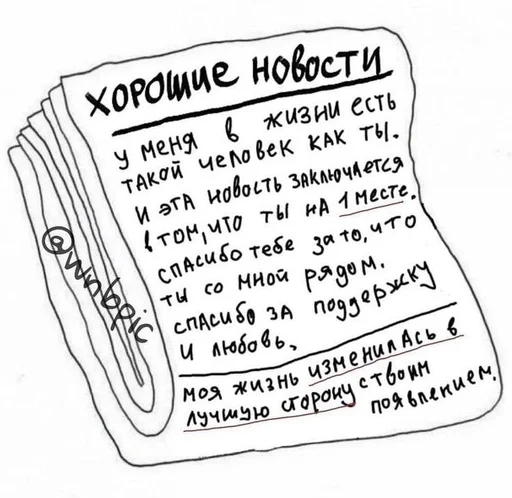 ХОРОШИЕ НОВОСТИ
У МЕНЯ В ЖИЗНИ ЕСТЬ
ТАКОЙ ЧЕЛОВЕК КАК ТЫ.
И ЭТА НОВОСТЬ ЗАКЛЮЧАЕТСЯ
В ТОМ, ЧТО ТЫ НА 1 МЕСТЕ.
СПАСИБО ТЕБЕ ЗА ТО, ЧТО
ТЫ СО МНОЙ РЯДОМ.
СПАСИБО ЗА ПОДДЕРЖКУ
И ЛЮБОВЬ.
МОЯ ЖИЗНЬ ИЗМЕНИЛАСЬ В
ЛУЧШУЮ СТОРОНУ С ТВОИМ
ПОЯВЛЕНИЕМ.
@wnbpic